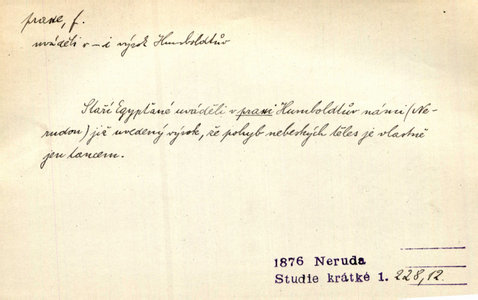 praxe, f.
uváděli v –i výrok Humboldtův
Staří Egypťané uváděli v praxi Humboldtův námi (Ne-
rudou) již uvedený výrok, že pohyb nebeských těles je vlastně
jen tancem.
1876 Neruda
Studie krátké 1. 228,12